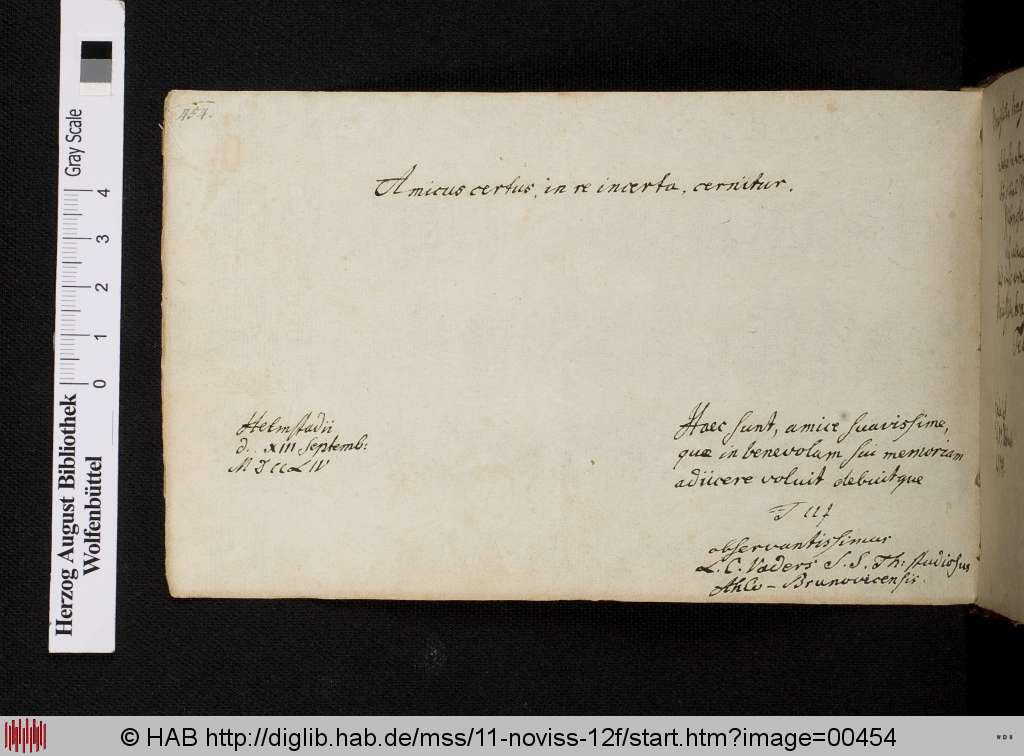 454.
Amicus certus, in re incerta, cernitur.
Helmstadii
d. XIII Septemb:
MDCCLIV
Haec sunt, amice suavissime,
quae in benevolam sui memoriam
adiicere voluit debuitque
Tui
observantissimus
L. C. Vaders S. S. Th: studiosus
Ahlo-Brunovicensis.
Herzog August Bibliothek
Wolfenbüttel
Gray Scale
0 1 2 3 4
© HAB http://diglib.hab.de/mss/11-noviss-12f/start.htm?image=00454